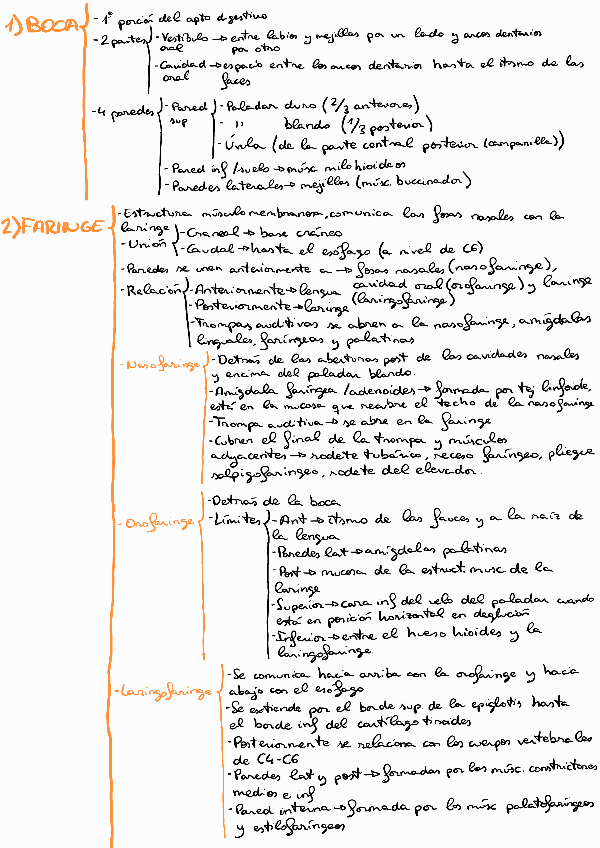 1) BOCA
- 1ª porción del apto digestivo
- 2 partes - Vestíbulo → entre labios y mejillas por un lado y arcos dentarios
oral por otro
- Cavidad → espacio entre los arcos dentarios hasta el itsmo de las
oral fauces
- 4 paredes - Pared - Paladar duro (2/3 anteriores)
sup - " blando (1/3 posterior)
- Úvula (de la parte central posterior (campanilla))
- Pared inf / suelo → músc milohioideos
- Paredes laterales → mejillas (músc. buccinador)
2) FARINGE
- Estructura músculomembranosa, comunica las fosas nasales con la
laringe
- Unión - Craneal → base cráneo
- Caudal → hasta el esófago (a nivel de C6)
- Paredes se unen anteriormente a → fosas nasales (nasofaringe),
cavidad oral (orofaringe) y laringe
(laringofaringe)
- Relación - Anteriormente → lengua
- Posteriormente → laringe
- Trompas auditivas se abren a la nasofaringe, amígdalas
linguales, faríngeas y palatinas
- Nasofaringe - Detrás de las aberturas post de las cavidades nasales
y encima del paladar blando.
- Amígdala faríngea / adenoides → formada por tej linfoide,
está en la mucosa que recubre el techo de la nasofaringe
- Trompa auditiva → se abre en la faringe
- Cubren el final de la trompa y músculos
adyacentes → rodete tubárico, receso faríngeo, pliegue
salpigofaríngeo, rodete del elevador.
- Orofaringe - Detrás de la boca
- Límites - Ant → itsmo de las fauces y a la raíz de
la lengua
- Paredes lat → amígdalas palatinas
- Post → mucosa de la estruct. musc de la
laringe
- Superior → cara inf del velo del paladar cuando
está en posición horizontal en deglución
- Inferior → entre el hueso hioides y la
laringofaringe
- Laringofaringe - Se comunica hacia arriba con la orofaringe y hacia
abajo con el esófago
- Se extiende por el borde sup. de la epiglotis hasta
el borde inf del cartílago tiroides
- Posteriormente se relaciona con los cuerpos vertebrales
de C4-C6
- Paredes lat y post → formadas por los músc. constrictores
medios e inf
- Pared interna → formada por los músc palatofaríngeos
y estilofaríngeos